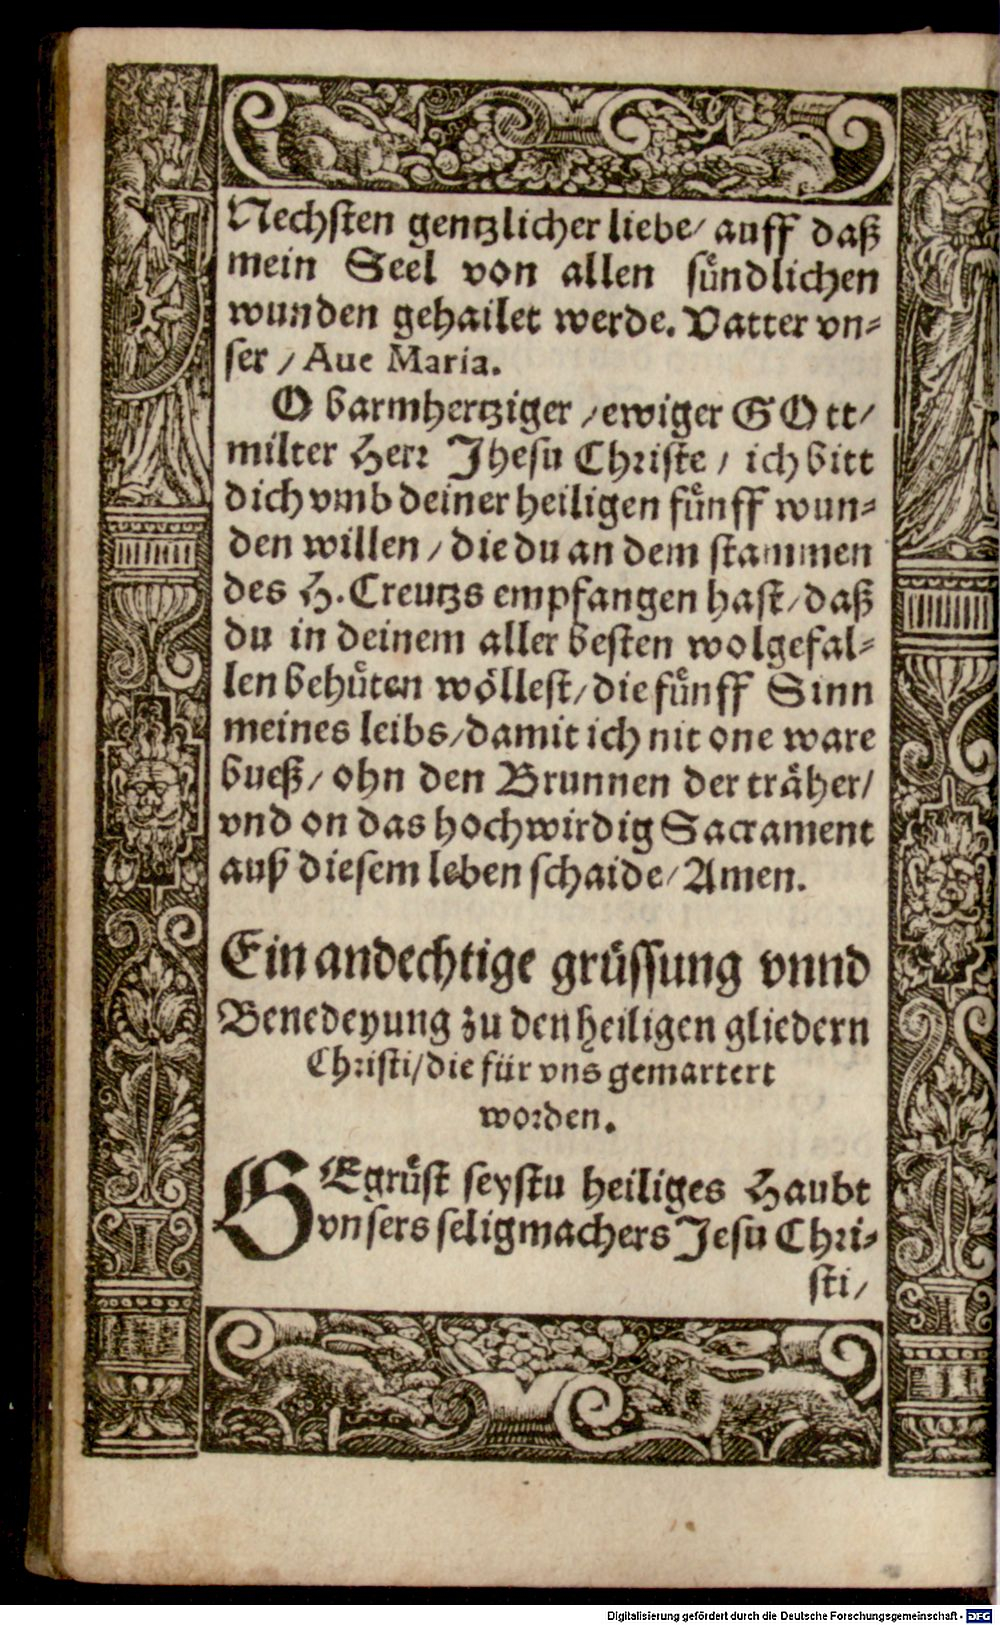 Nechsten gentzlicher liebe/ auff daß
mein Seel von allen sündlichen
wunden gehailet werde. Vatter vn-
ser / Aue Maria.
O barmhertziger / ewiger GOtt/
milter Herr Jhesu Christe / ich bitt
dich vmb deiner heiligen fünff wun-
den willen / die du an dem stammen
des H. Creutzs empfangen hast/ daß
du in deinem aller besten wolgefal-
len behüten wöllest/ die fünff Sinn
meines leibs/ damit ich nit one ware
bueß/ ohn den Brunnen der träher/
vnd on das hochwirdig Sacrament
auß diesem leben schaide/ Amen.
Ein andechtige grüssung vnnd
Benedeyung zu den heiligen gliedern
Christi/ die für vns gemartert
worden.
GEgrüst seystu heiliges Haubt
vnsers seligmachers Jesu Chri-
sti/
Digitalisierung gefördert durch die Deutsche Forschungsgemeinschaft - DFG